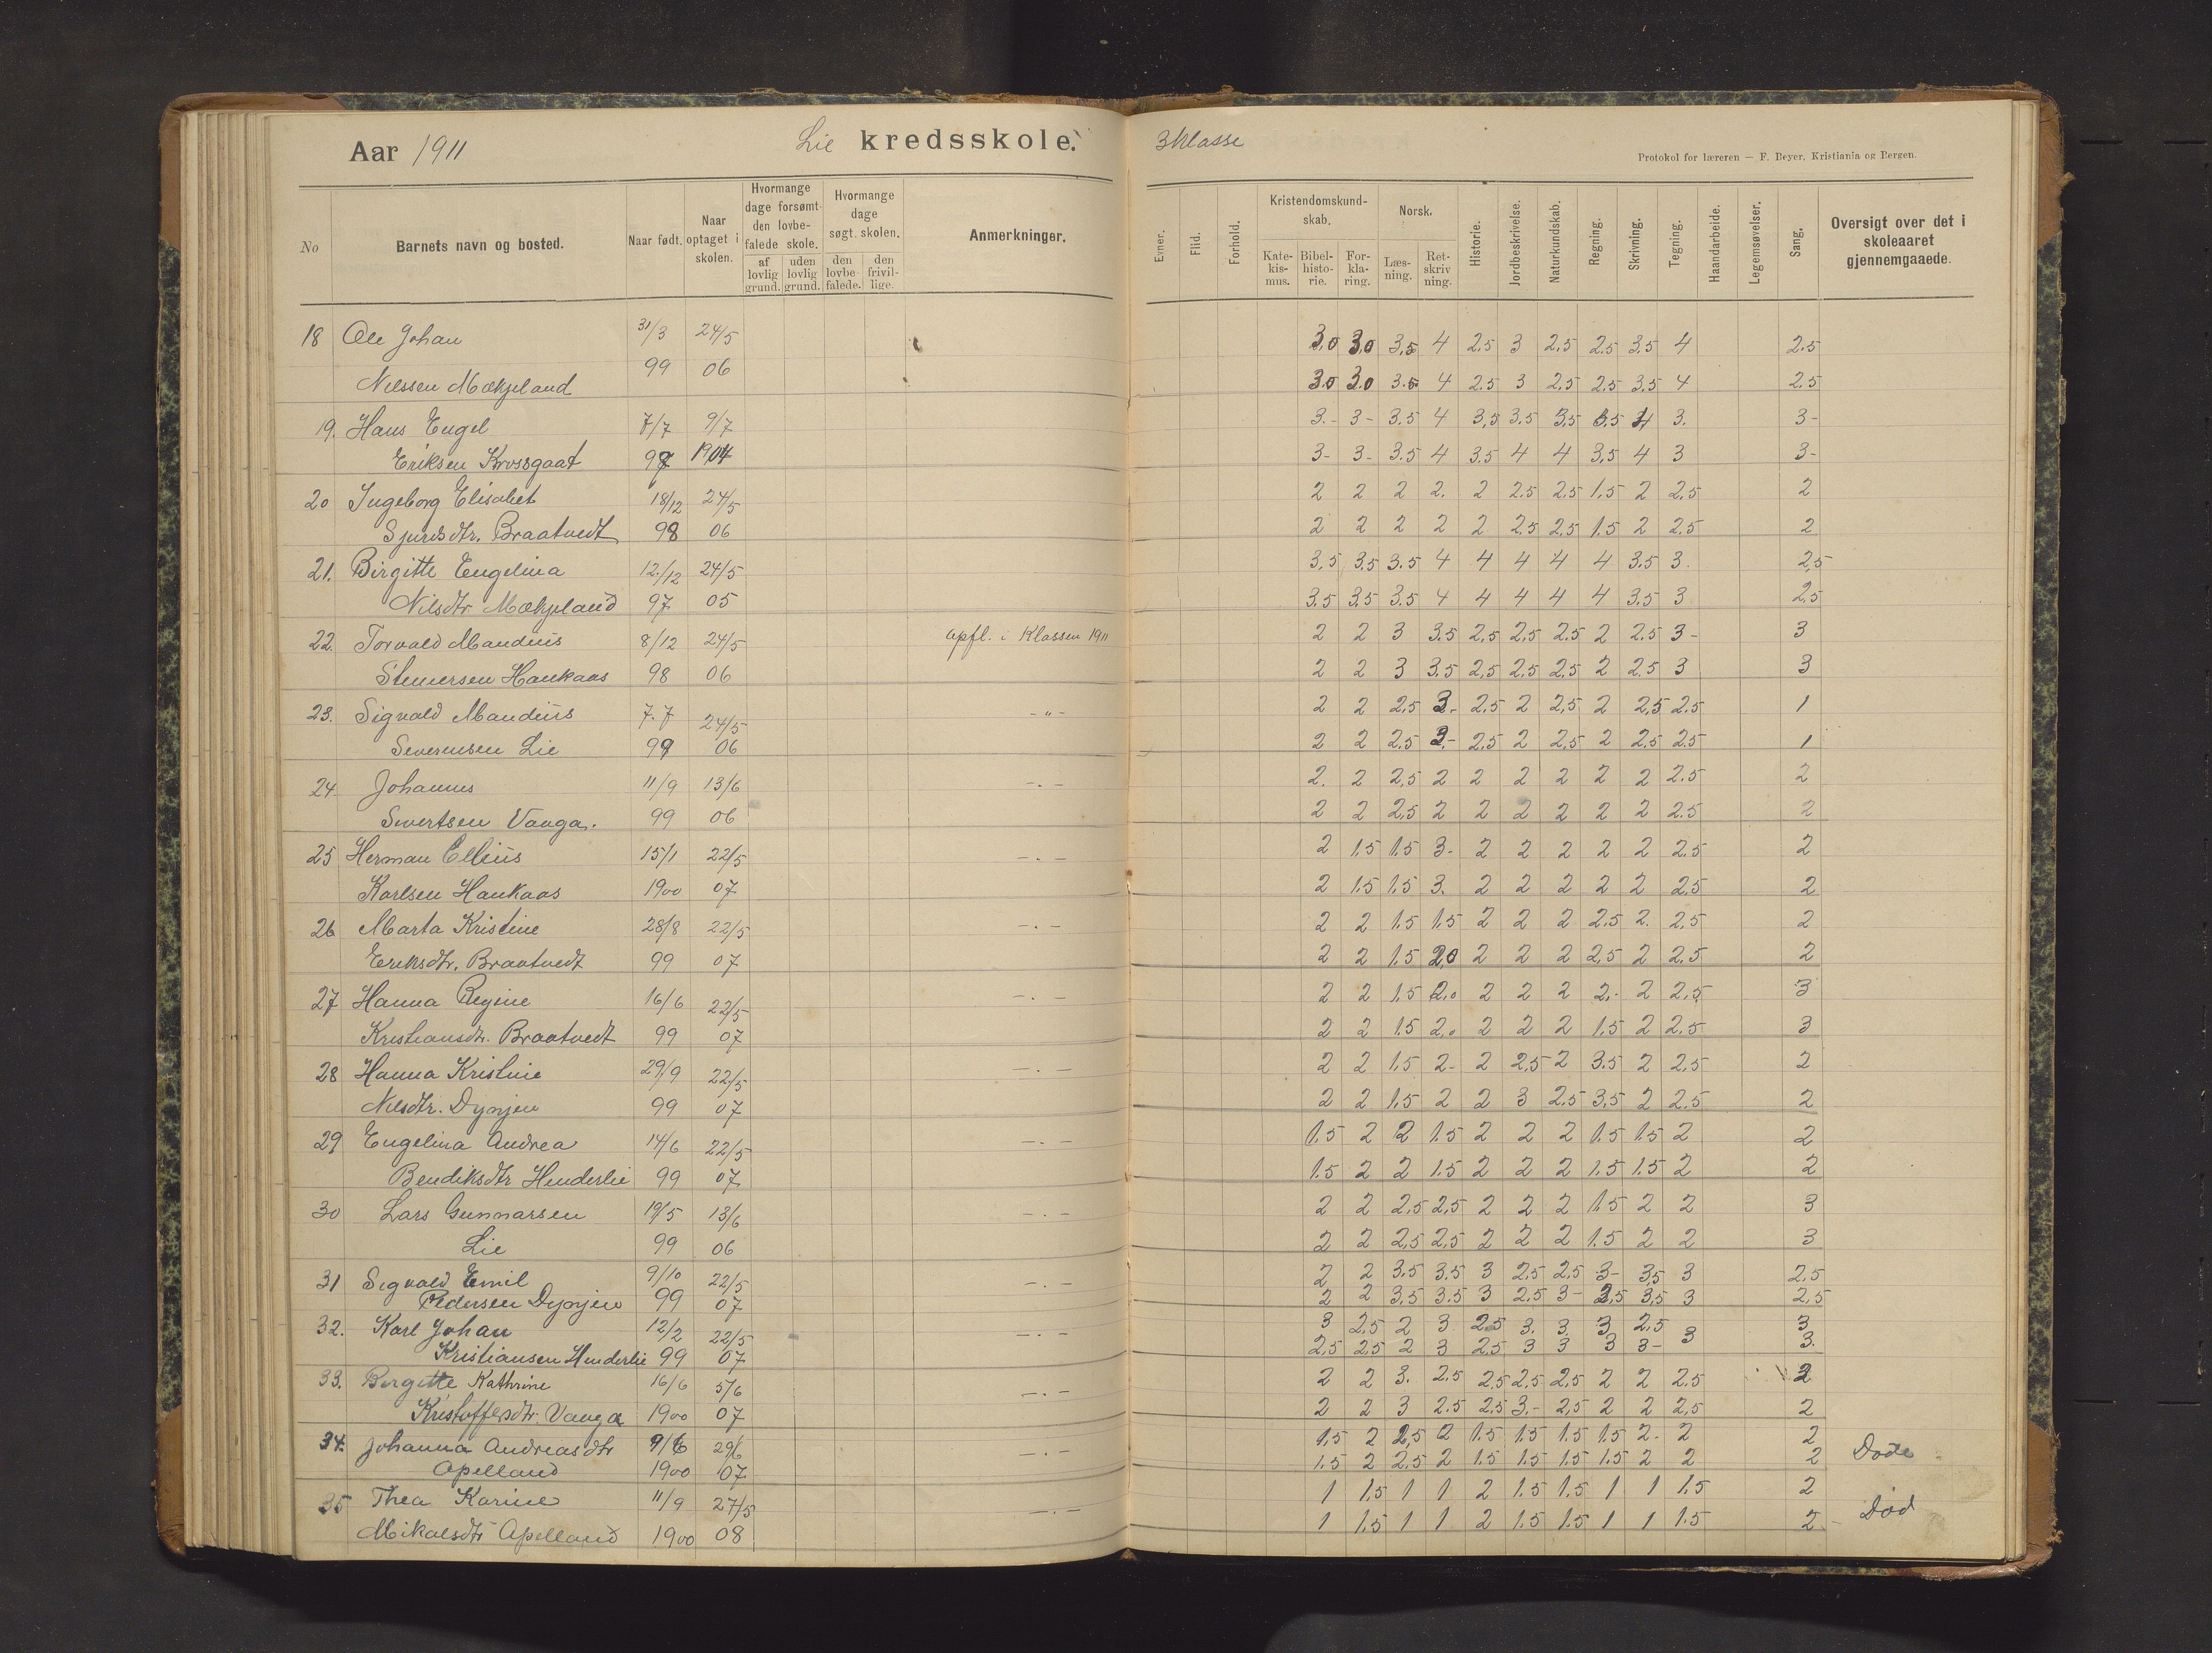 Aar 1911 Lie kredsskole. 3 klasse
Protokol for læreren — F. Beyer, Kristiania og Bergen.
No Barnets navn og bosted. Naar født. Naar optaget i skolen. Hvormange dage forsømt den lovbefalede skole. af lovlig grund. uden lovlig grund. Hvormange dage søgt skolen. den lovbefalede. den frivillige. Anmerkninger. Evner. Flid. Forhold. Kristendomskundskab. Katekismus. Bibelhistorie. Forklaring. Norsk. Læsning. Retskrivning. Historie. Jordbeskrivelse. Naturkundskab. Regning. Skrivning. Tegning. Haandarbeide. Legemsøvelser. Sang. Oversigt over det i skoleaaret gjennemgaaede.
18 Ole Johan 31/3 24/5 3,0 3,0 3,5 4 2,5 3 2,5 2,5 3,5 4 2.5
Nilssen Mækjeland 99 06 3.0 3.0 3.5 4 2.5 3 2,5 2,5 3,5 4 2.5
19. Hans Engel 7/7 9/7 3.- 3- 3.5 4 3,5 3.5 3,5 3.5 4 3. 3-
Eriksen Krossgaat 1904 3- 3- 3.5 4 3.5 4 4 3,5 4 3 3-
20 Ingeborg Elisabet 18/12 24/5 2 2 2 2. 2 2.5 2.5 1.5 2 2,5 2
Sjursdtr. Braatvedt 98 06 2 2 2 2 2 2.5 2,5 1.5 2 2.5 2
21. Birgitte Engelina 12/12 24/5 3,5 3.5 3.5 4 4 4 4 4 3.5 3. 2,5
Nilsdtr Mækjeland 97 05 3.5 3.5 3.5 4 4 4 4 4 3.5 3 2,5
22. Torvald Mandius 8/12 24/5 opfl. i Klassen 1911 2 2 3 3.5 2,5 2,5 2.5 2 2.5 3- 3
Stenersen Haukaas 98 06 2 2 3 3.5 2,5 2,5 2,5 2 2.5 3 3
23. Sigvald Mandius 7.7 24/5 -"- 2 2 2,5 3- 2.5 2 2,5 2 2,5 2.5 1
Severinsen Lie 06 2 2 2.5 3.- 2,5 2 2,5 2 2,5 2.5 1
24. Johannes 11/9 13/6 -.- 2. 2 2,5 2 2 2 2 2 2 2.5 2
Sivertsen Vaaga. 99 06 2 2 2,5 2 2 2 2 2 2 2.5 2
25 Herman Ellius 15/1 22/5 -.- 2 1.5 1.5 3- 2 2 2 2 2 2.5 2
Karlsen Haukaas 1900 07 2 1.5 1.5 3. 2 2 2 2 2 2.5 2
26 Marta Kristine 28/8 22/5 -.- 2 2 1.5 1.5 2 2 2 2.5 2. 2.5 2
Eriksdtr. Braatvedt 99 07 2 2 1.5 2,0 2 2 2 2,5 2 2.5 2
27 Hanna Regine 16/6 22/5 -.- 2 2 1.5 2.0 2 2 2 2.- 2 2.5 3
Kristiansdtr. Braatvedt 99 07 2 2 1.5 2.0 2 2 2 1.5 2 2.5 3
28 Hanna Kristine 29/9 22/5 -.- 2 2 1.5 2- 2 2,5 2 3.5 2 2,5 2
Nilsdtr. Dyorjen 99 07 2 2 1.5 2 2 3 2.5 3.5 2 2.5 2
29 Engelina Andrea 14/6 22/5 -.- 1.5 2 2 1.5 2 2 2 1.5 1.5 2 2
Bendiksdtr Henderlie 99 07 1.5 2 2 1.5 2 2 2 1.5 1.5 2 2
30 Lars Gunnarsen 19/5 13/6 -.- 2 2 2,5 2,5 2 2 2 1.5 2 2 3
Lie 99 06 2 2 2,5 2,5 2 2 2 1.5 2 2 3
31 Sigvald Emil 9/10 22/5 -.- 2 2 3.5 3.5 3 2,5 2,5 3- 3,5 3 2,5
Pedersen Dyorjen 99 07 2 2 3,5 3.5 3 2.5 3- 3,5 3 2,5
32. Karl Johan 12/2 22/5 -.- 3 2,5 2 3 2.5 3. 3. 3 2.5 3 3
Kristiansen Henderlie 99 07 2,5 2,5 2 3 2,5 3 3 3 3- 3.
33. Birgitte Kathrine 16/6 5/6 -.- 2 2 3. 2.5 2.5 2,5 2,5 2 2 2.5 2
Kristoffersdtr. Vaaga 1900 07 2 2 3 2.5 2.5 3.- 2,5 2 2 2,5 2
34. Johanna Andreasdtr 9/6 29/6 -.- 1.5 2 2,5 2 1.5 1.5 1.5 1.5 2- 2 2 Døde
Apelland 1900 07 1.5 2 2.5 2 1.5 1.5 1.5 1.5 2 2 2
35 Thea Karine 11/9 27/5 -.- 1 1.5 1 1 2 1.5 1.5 1 1 1.5 2 Død
Mikalsdtr Apelland 1900 08 1 1.5 1 1 2 1.5 1.5 1 1 1.5 2-